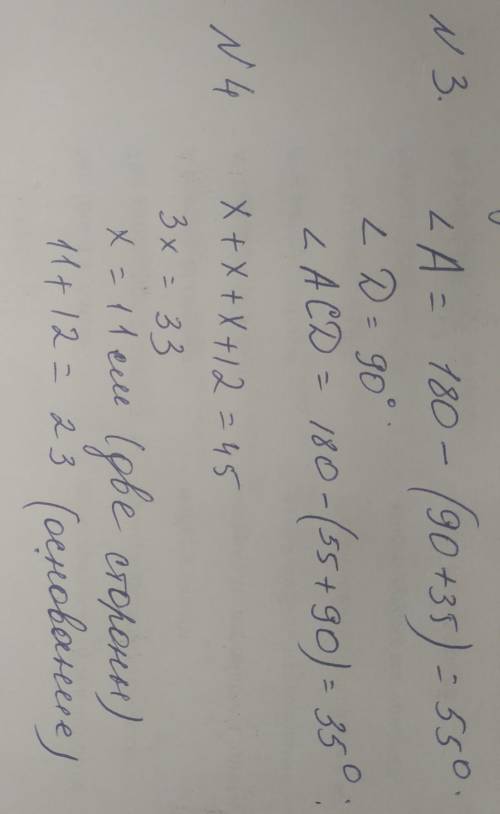 N 3. ∠A = 180 - (90+35) = 55°.
∠D = 90°.
∠ACD = 180 - (55+90) = 35°.
N 4 x + x + x + 12 = 45
3x = 33
x = 11 см (две стороны)
11 + 12 = 23 (основание)